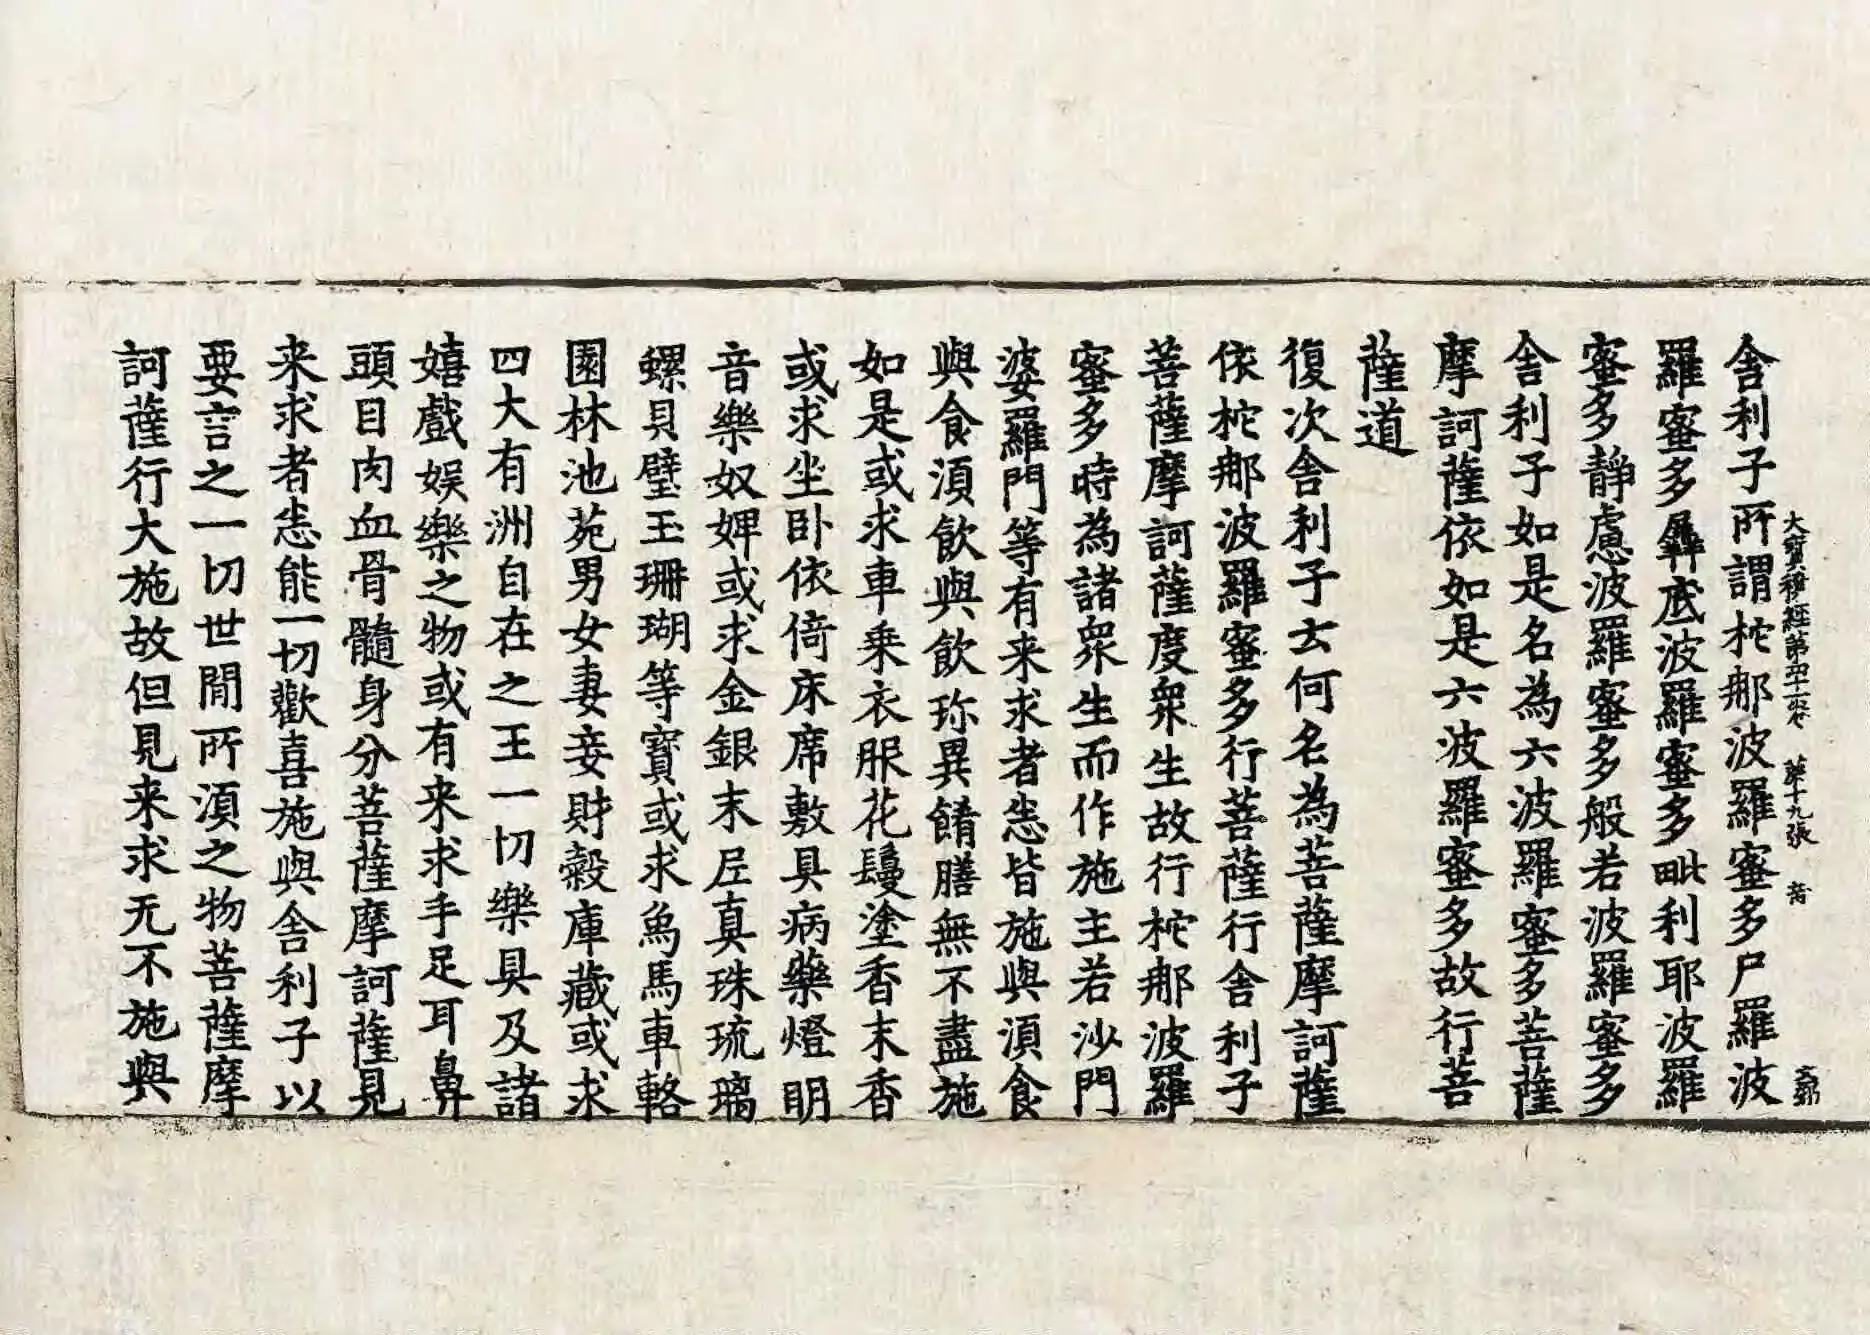 大寶積經第四十一卷 第十九張
舍利子所謂柁那波羅蜜多尸羅波
羅蜜多羼底波羅蜜多毗利耶波羅
蜜多靜慮波羅蜜多般若波羅蜜多
舍利子如是名為六波羅蜜多菩薩
摩訶薩依如是六波羅蜜多故行菩
薩道
復次舍利子云何名為菩薩摩訶薩
依柁那波羅蜜多行菩薩行舍利子
菩薩摩訶薩度衆生故行柁那波羅
蜜多時為諸衆生而作施主若沙門
婆羅門等有来求者悉皆施與湏食
與食湏飲與飲珎異餚膳無不盡施
如是或求車乗衣服花鬘塗香末香
或求坐卧依倚床席敷具病藥燈明
音樂奴婢或求金銀末尼真珠琉璃
螺貝璧玉珊瑚等寶或求象馬車輅
園林池苑男女妻妾財糓庫藏或求
四大有洲自在之王一切樂具及諸
嬉戲娛樂之物或有来求手足耳鼻
頭目肉血骨髓身分菩薩摩訶薩見
来求者悉能一切歡喜施與舍利子以
要言之一切世間所湏之物菩薩摩
訶薩行大施故但見来求无不施與